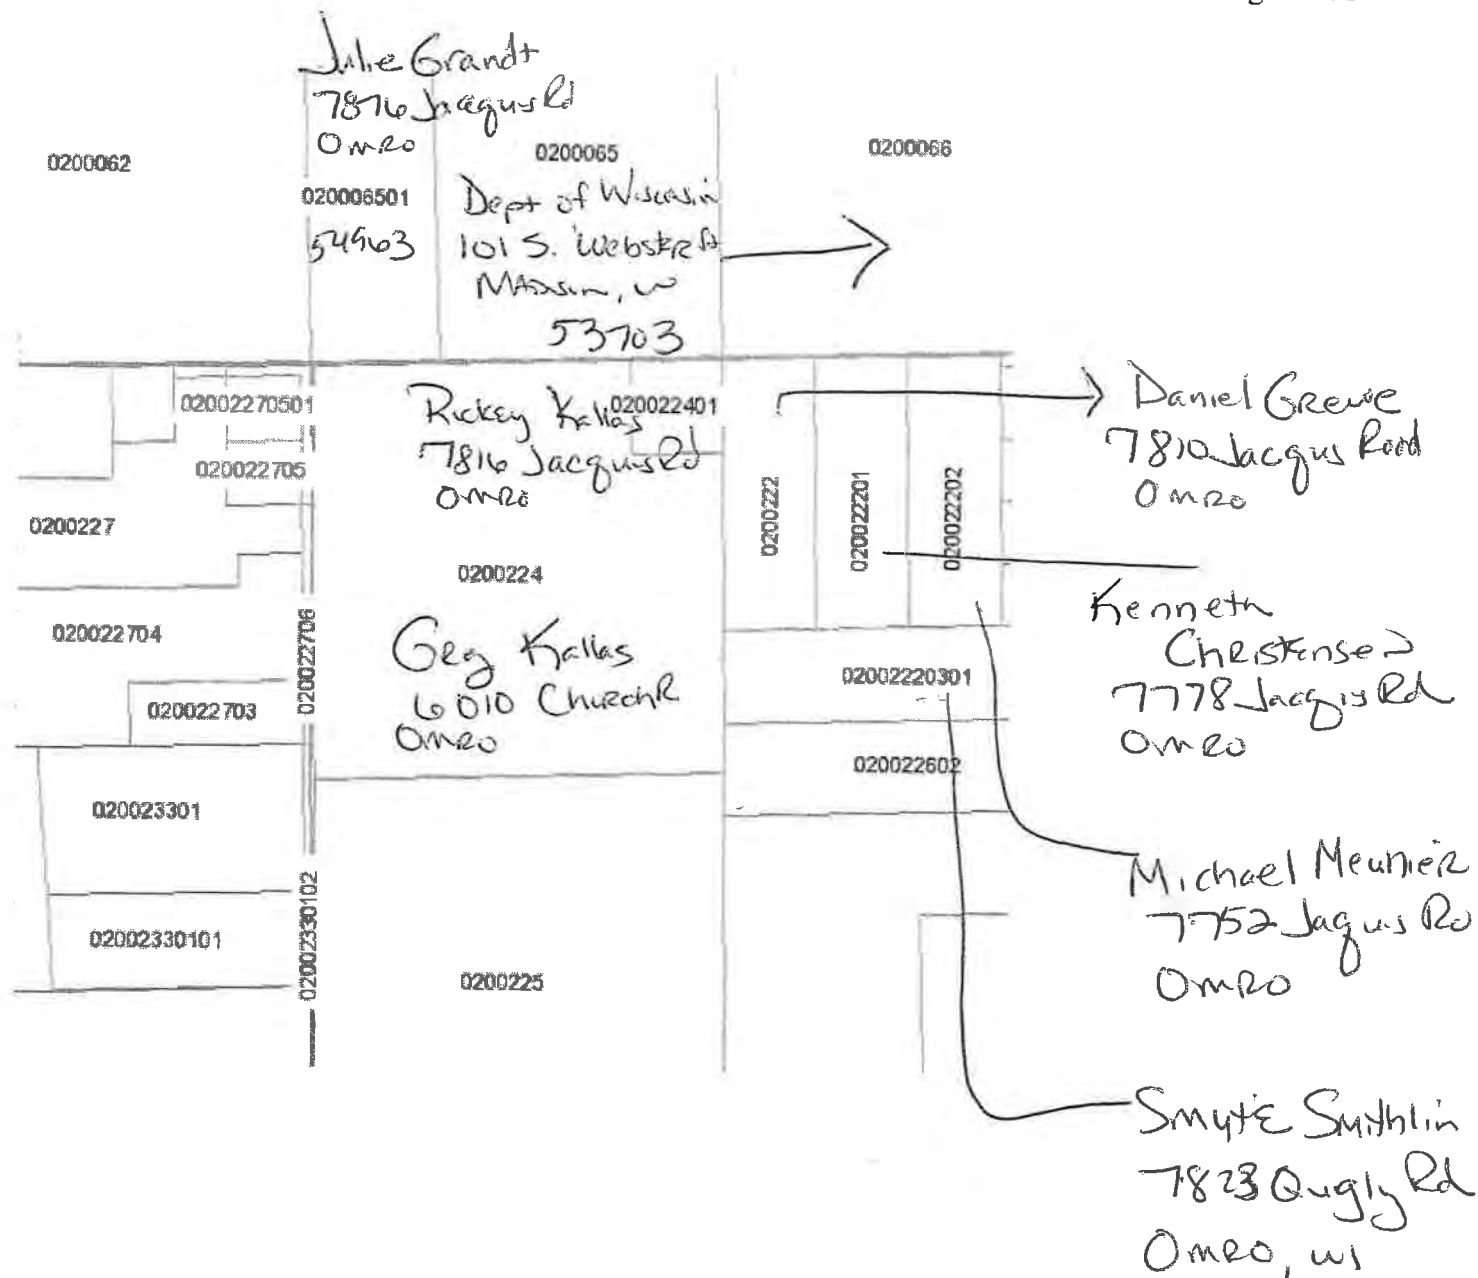 Julie Grandt
7876 Jacquis Rd
Omro
0200062
020006501
54963
0200065
Dept of Wisconsin
101 S. Webster St
Madison, W
53703
0200066
02002270501
020022705
0200227
020022704
020022703
020022706
020023301
02002330101
02002330102
Rickey Kallas
7816 Jacquis Rd
Omro
020022401
0200224
Greg Kallas
6010 Church R
Omro
0200225
0200222
020022201
020022202
02002220301
020022602
Daniel Grewe
7810 Jacqus Road
Omro
Kenneth
Christensen
7778 Jacquis Rd
Omro
Michael Meunier
7752 Jaquis Rd
Omro
Smythlin
7823 Qugly Rd
Omro, WI